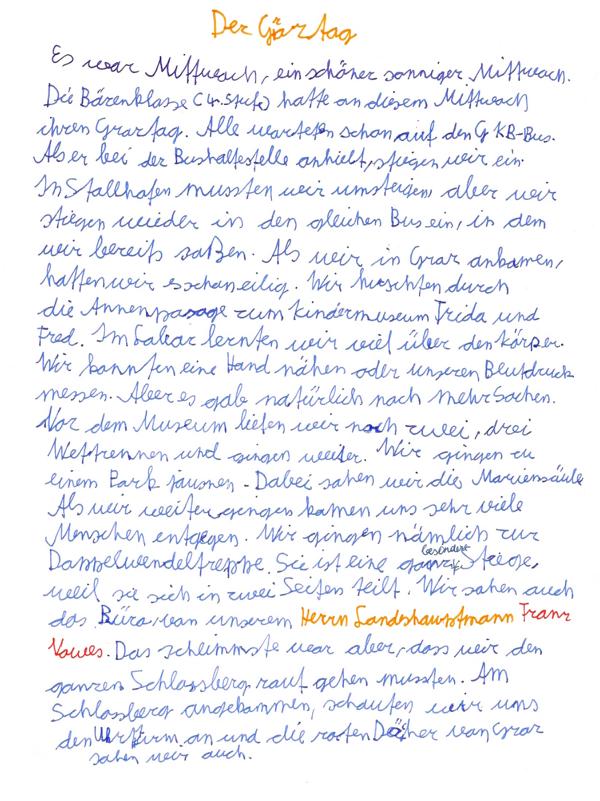 Der Graztag
Es war Mittwoch, ein schöner sonniger Mittwoch.
Die Bärenklasse (4. Stufe) hatte an diesem Mittwoch
ihren Graztag. Alle warteten schon auf den GKB-Bus.
Als er bei der Bushaltestelle anhielt, stiegen wir ein.
In Stallhofen mussten wir umsteigen, aber wir
stiegen wieder in den gleichen Bus ein, in dem
wir bereits saßen. Als wir in Graz ankamen,
hatten wir es schon eilig. Wir huschten durch
die Annenpassage zum Kindermuseum Frida und
Fred. Im Labor lernten wir viel über den Körper.
Wir konnten eine Hand nähen oder unseren Blutdruck
messen. Aber es gab natürlich noch mehr Sachen.
Vor dem Museum liefen wir noch zwei, drei
Wettrennen und gingen weiter. Wir gingen zu
einem Park jausnen. Dabei sahen wir die Mariensäule
Als wir weitergingen kamen uns sehr viele
Menschen entgegen. Wir gingen nämlich zur
Doppelwendeltreppe. Sie ist eine Stiege,
weil sie sich in zwei Seiten teilt. Wir sahen auch
das Büro von unserem Herrn Landeshauptmann Franz
Voves. Das schlimmste war aber, dass wir den
ganzen Schlossberg rauf gehen mussten. Am
Schlossberg angekommen, schauten wir uns
den Uhrturm an und die roten Dächer von Graz
sahen wir auch.